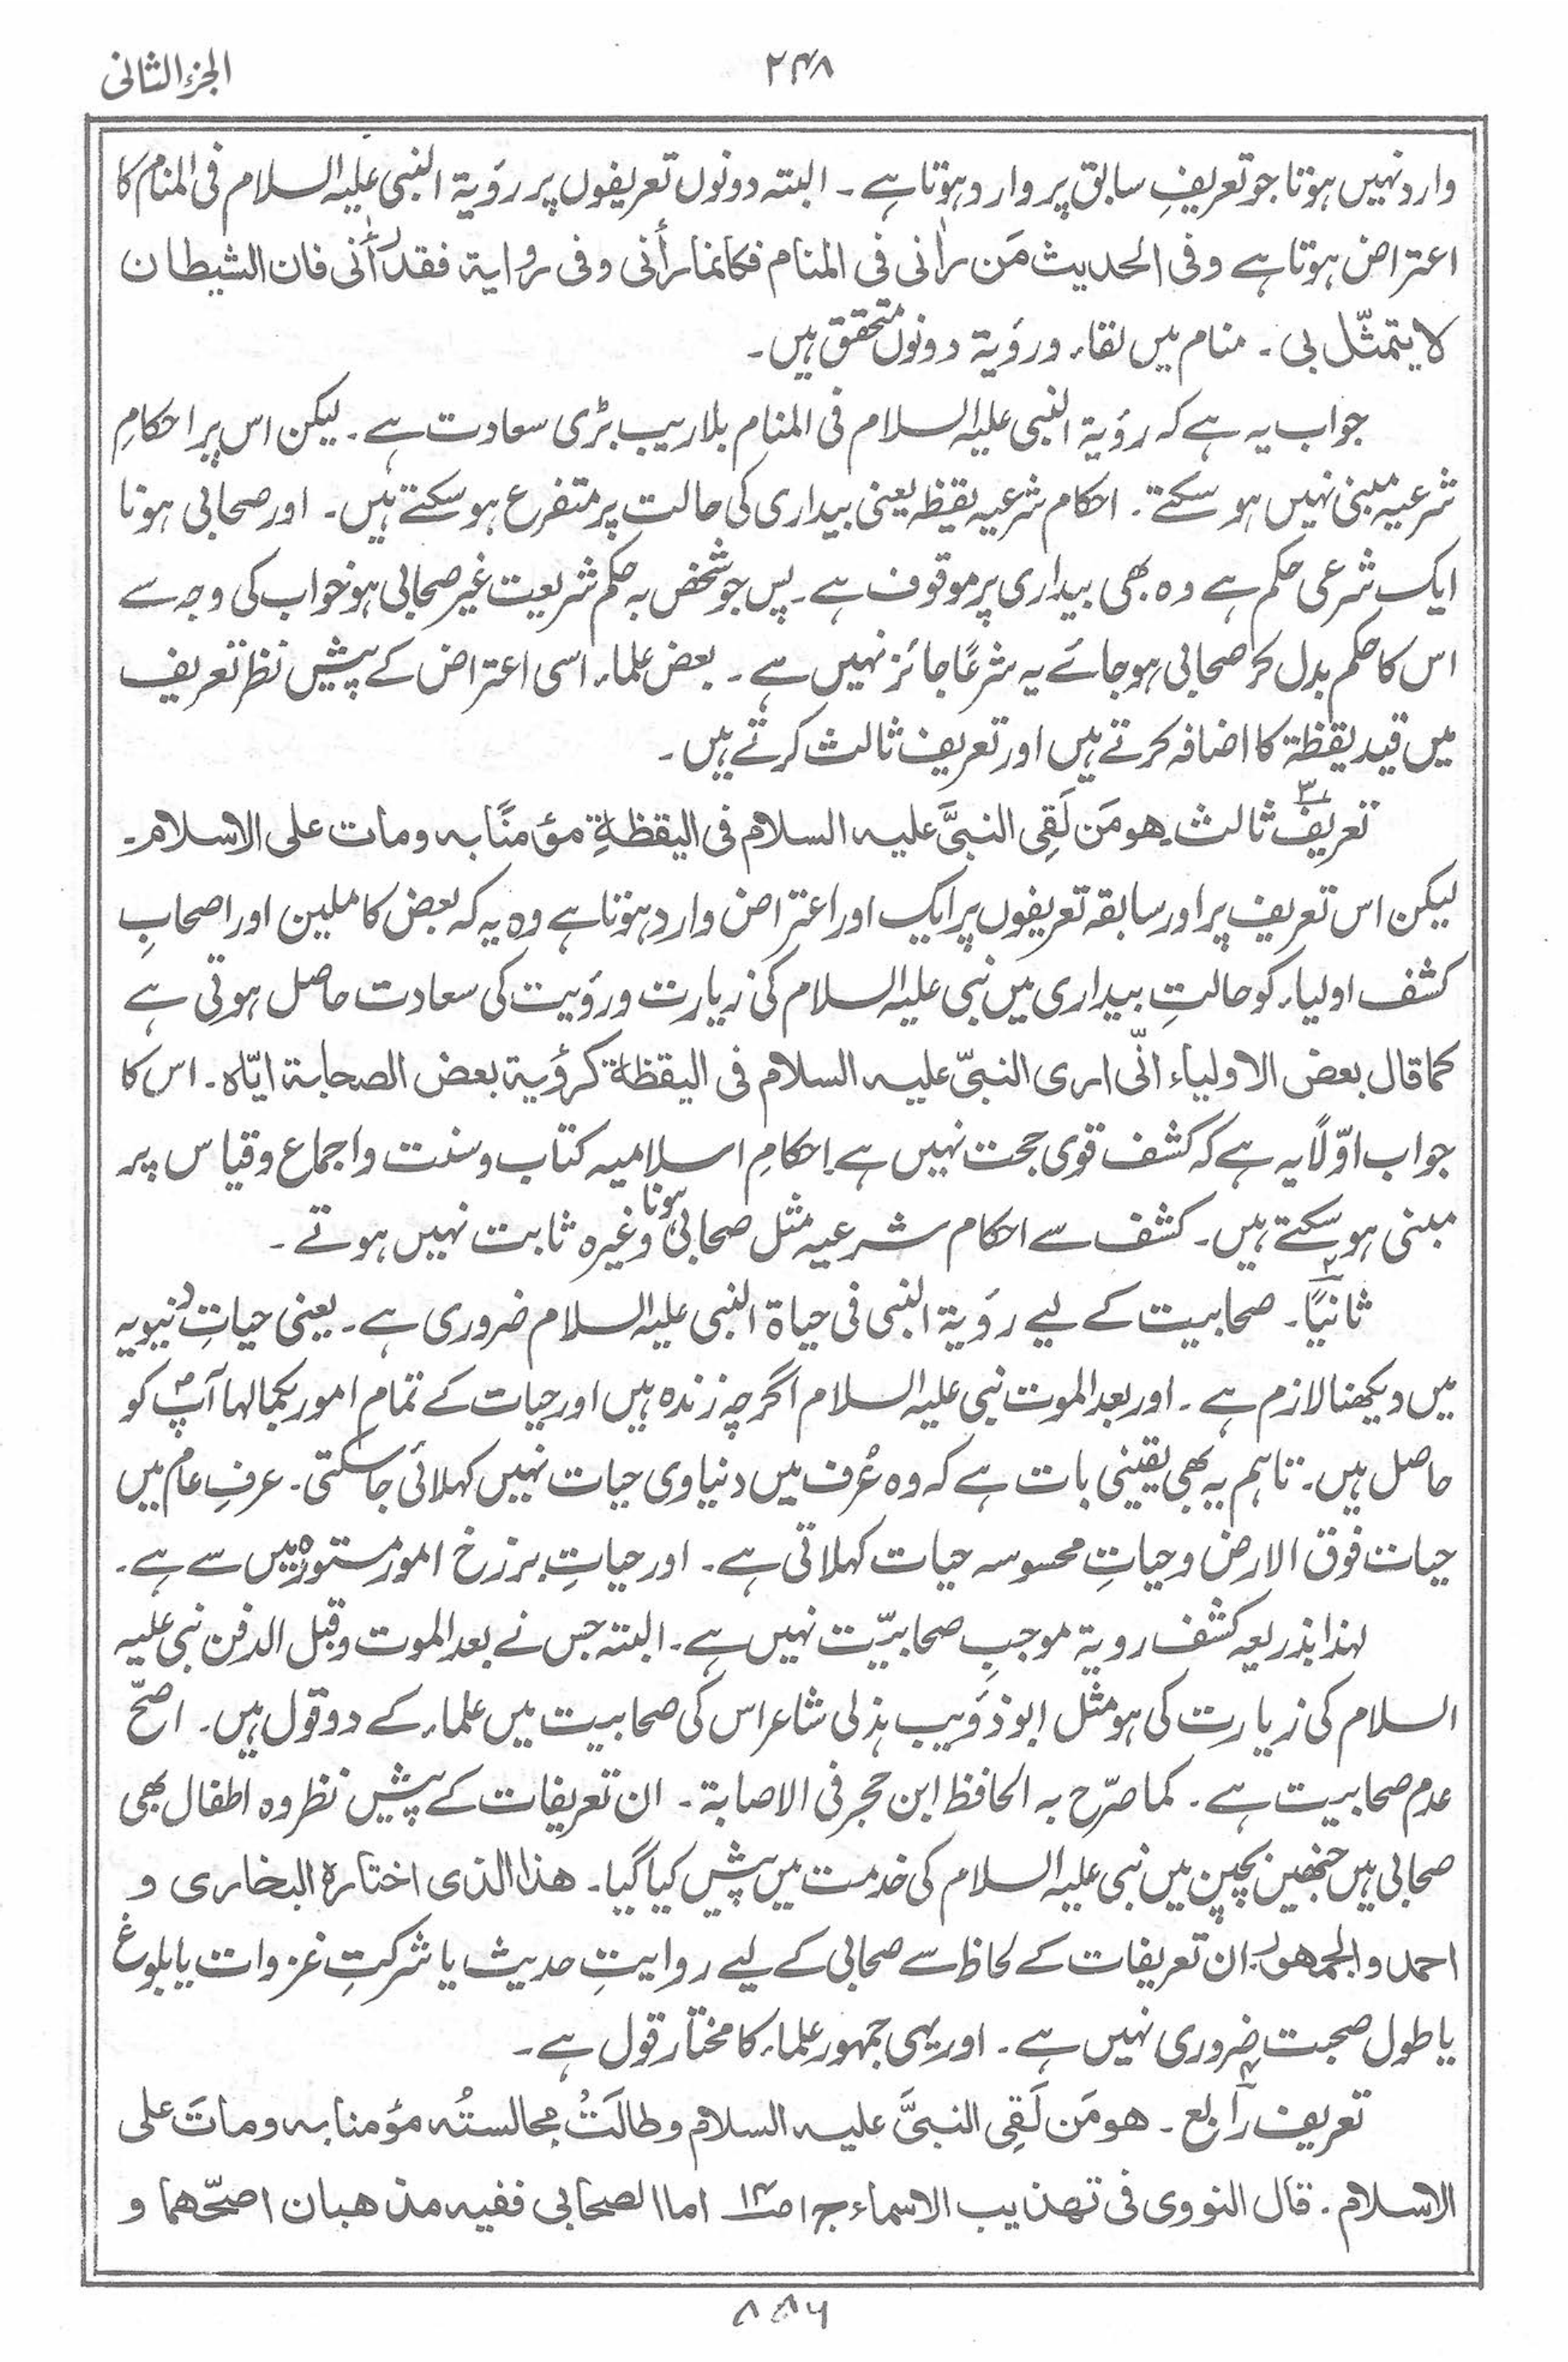 الجزء الثانی
۲۴۸
وارد نہیں ہوتا جو تعریفِ سابق پر وارد ہوتا ہے ۔ البتہ دونوں تعریفوں پر رؤیۃ النبی علیہ السلام فی المنام کا
اعتراض ہوتا ہے وفی الحدیث مَن رأنی فی المنام فکانما رأنی وفی روایۃ فقد رأنی فان الشیطان
لا یتمثّل بی ۔ منام میں لقاء و رؤیۃ دونوں متحقق ہیں ۔
جواب یہ ہے کہ رؤیۃ النبی علیہ السلام فی المنام بلاریب بڑی سعادت ہے ۔ لیکن اس پر احکامِ
شرعیہ مبنی نہیں ہو سکتے ۔ احکام شرعیہ یقظہ یعنی بیداری کی حالت پر متفرع ہو سکتے ہیں ۔ اور صحابی ہونا
ایک شرعی حکم ہے وہ بھی بیداری پر موقوف ہے ۔ پس جو شخص بہ حکم شریعت غیر صحابی ہو خواب کی وجہ سے
اس کا حکم بدل کر صحابی ہو جائے یہ شرعًا جائز نہیں ہے ۔ بعض علماء اسی اعتراض کے پیش نظر تعریف
میں قید یقظۃ کا اضافہ کرتے ہیں اور تعریف ثالث کرتے ہیں ۔
تعریف ۳ ثالث ۔ ھو مَن لَقِی النبیَّ علیہ السلام فی الیقظۃِ مؤمنًا بہ ومات علی الاسلام ۔
لیکن اس تعریف پر اور سابقہ تعریفوں پر ایک اور اعتراض وارد ہوتا ہے وہ یہ کہ بعض کاملین اور اصحابِ
کشف اولیاء کو حالتِ بیداری میں نبی علیہ السلام کی زیارت و رؤیت کی سعادت حاصل ہوتی ہے
کما قال بعض الاولیاء انّی اری النبیّ علیہ السلام فی الیقظۃ کرؤیۃ بعض الصحابۃ ایّاہ ۔ اس کا
جواب اوّلًا یہ ہے کہ کشف قوی حجت نہیں ہے ۔ احکامِ اسلامیہ کتاب و سنت و اجماع و قیاس پر
مبنی ہو سکتے ہیں ۔ کشف سے احکام شرعیہ مثل صحابی ہونا وغیرہ ثابت نہیں ہوتے ۔
ثانیًا ۲ ۔ صحابیت کے لیے رؤیۃ النبی فی حیاۃ النبی علیہ السلام ضروری ہے ۔ یعنی حیاتِ دنیویہ
میں دیکھنا لازم ہے ۔ اور بعد الموت نبی علیہ السلام اگرچہ زندہ ہیں اور حیات کے تمام امور بکمالہا آپؐ کو
حاصل ہیں ۔ تاہم یہ بھی یقینی بات ہے کہ وہ عُرف میں دنیاوی حیات نہیں کہلائی جا سکتی ۔ عرفِ عام میں
حیات فوق الارض و حیاتِ محسوسہ حیات کہلاتی ہے ۔ اور حیاتِ برزخ امور مستورہ میں سے ہے ۔
لہذا بذریعہ کشف رویۃ موجبِ صحابیّت نہیں ہے ۔ البتہ جس نے بعد الموت و قبل الدفن نبی علیہ
السلام کی زیارت کی ہو مثل ابو ذؤیب ہذلی شاعر اس کی صحابیت میں علماء کے دو قول ہیں ۔ اصحّ
عدم صحابیت ہے ۔ کما صرّح بہ الحافظ ابن حجر فی الاصابۃ ۔ ان تعریفات کے پیش نظر وہ اطفال بھی
صحابی ہیں جنھیں بچپن میں نبی علیہ السلام کی خدمت میں پیش کیا گیا ۔ ھذا الذی اختارہ البخاری و
احمد والجمھور ۔ ان تعریفات کے لحاظ سے صحابی کے لیے روایتِ حدیث یا شرکتِ غزوات یا بلوغ
یا طول صحبت ضروری نہیں ہے ۔ اور یہی جمہور علماء کا مختار قول ہے ۔
تعریف رابع ۴ ۔ ھو مَن لَقِی النبیَّ علیہ السلام وطالَتْ مجالستُہ مؤمنا بہ وماتَ علی
الاسلام ۔ قال النووی فی تہذیب الاسماء ج۱ ص۱۴ اما الصحابی ففیہ مذھبان اصحّھما و
۸۵۶